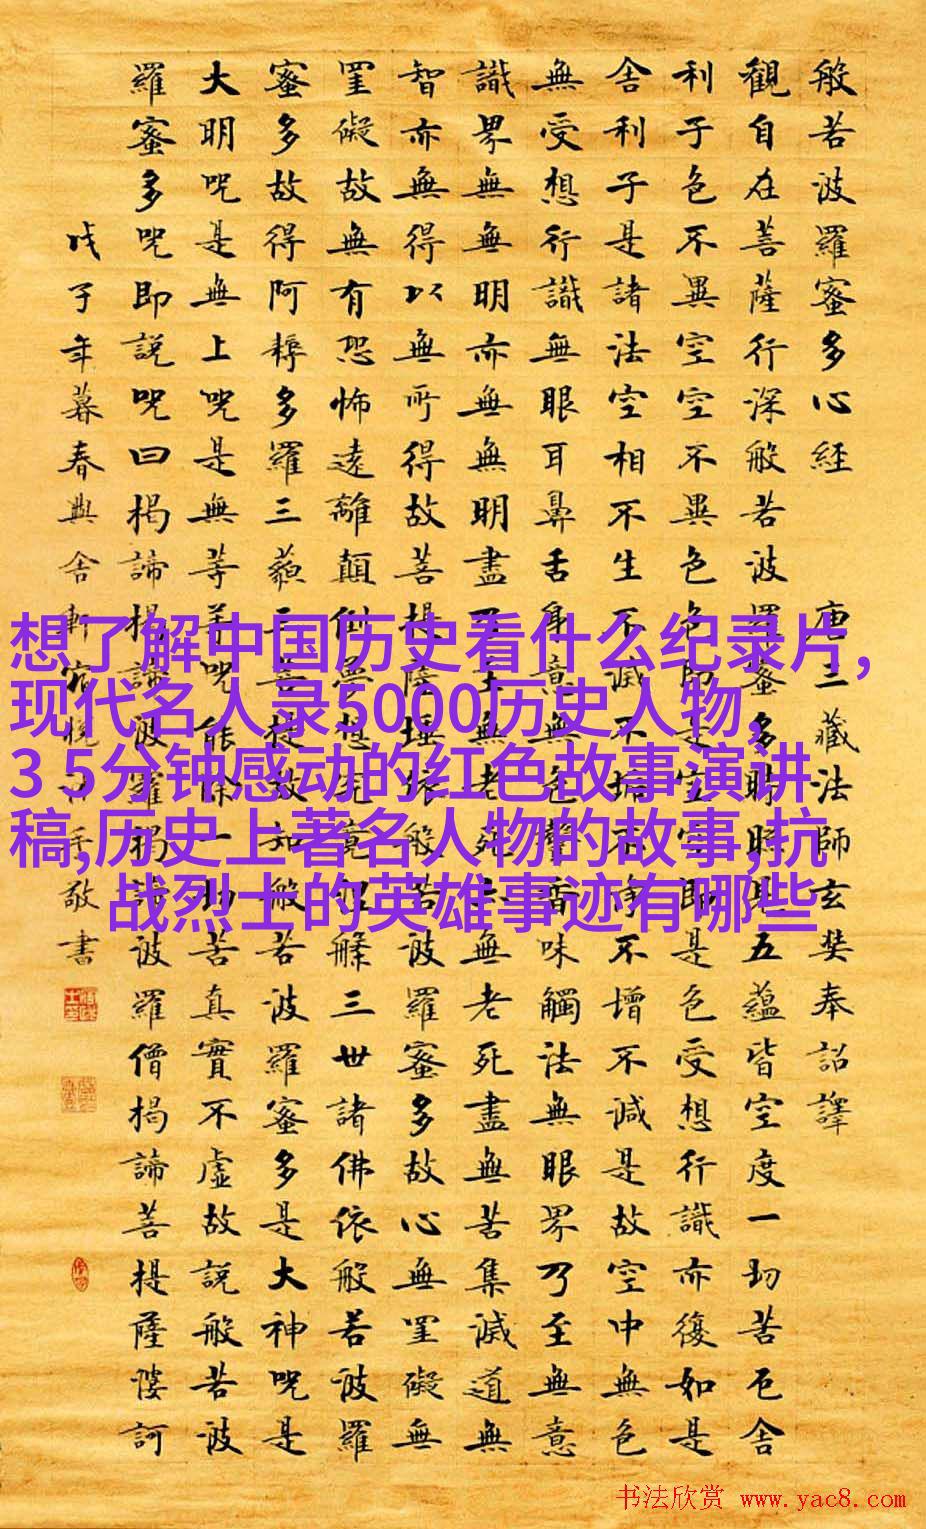 般若波羅蜜多心經 唐三藏法師玄奘奉詔譯
觀自在菩薩行深般若波羅蜜多時照見五蘊皆空度一切苦厄舍
利子色不異空空不異色色即是空空即是色受想行識亦復如是
舍利子是諸法空相不生不滅不垢不淨不增不減是故空中無色
無受想行識無眼耳鼻舌身意無色聲香味觸法無眼界乃至無意
識界無無明亦無無明盡乃至無老死亦無老死盡無苦集滅道無
智亦無得以無所得故菩提薩埵依般若波羅蜜多故心無罣礙無
罣礙故無有恐怖遠離顛倒夢想究竟涅槃三世諸佛依般若波羅
蜜多故得阿耨多羅三藐三菩提故知般若波羅蜜多是大神咒是
大明咒是無上咒是無等等咒能除一切苦真實不虛故說般若波
羅蜜多咒即說咒曰揭諦揭諦波羅揭諦波羅僧揭諦菩提薩婆訶
戊子年暮春興舍軒敬書
想了解中国历史看什么纪录片,
现代名人录5000历史人物,
3 5分钟感动的红色故事演讲
稿,历史上著名人物的故事,抗
战烈士的英雄事迹有哪些
书法欣赏 www.yac8.com